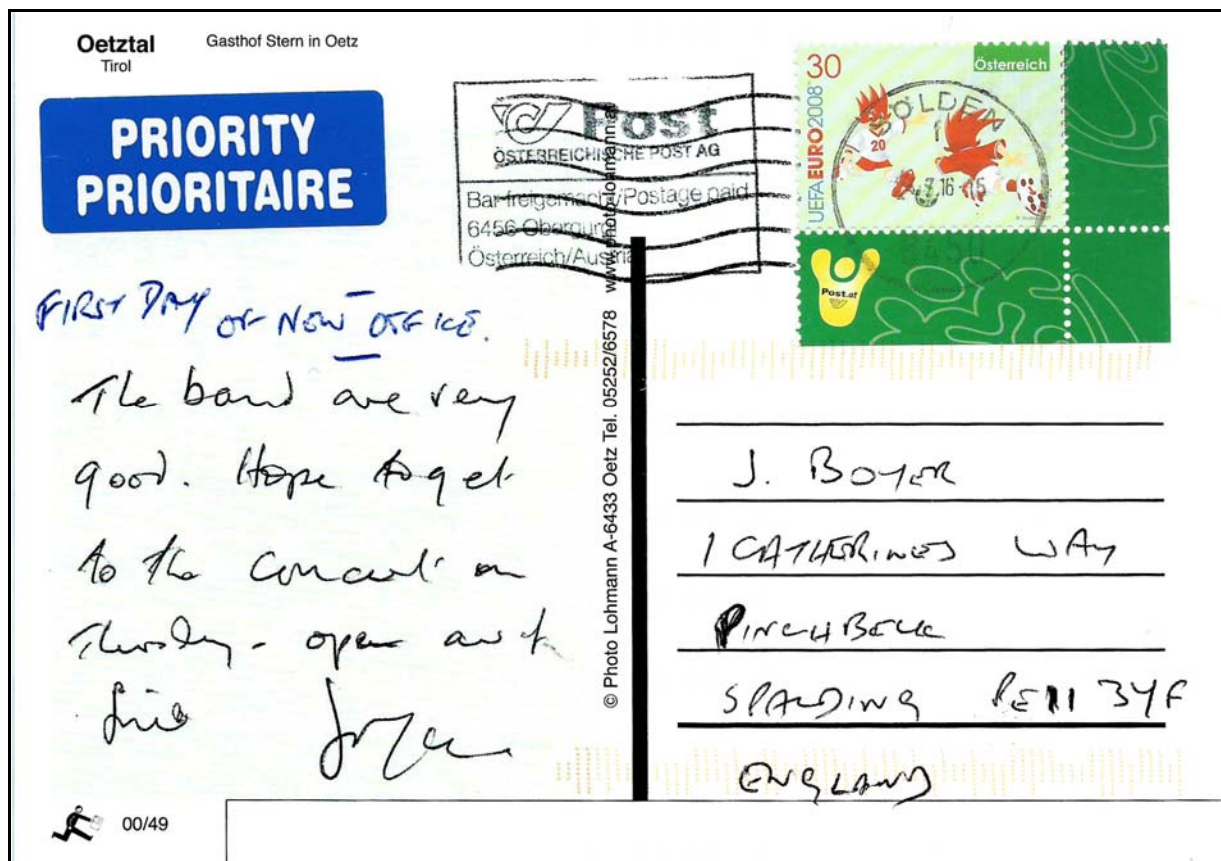 Oetztal
Tirol
Gasthof Stern in Oetz
PRIORITY
PRIORITAIRE
Post
ÖSTERREICHISCHE POST AG
Bar freigemacht/Postage paid
6456 Obergurgl
Österreich/Austria
30
Österreich
UEFA EURO2008
20
SÖLDEN
.7.16 -15
6450
Post.at
FIRST DAY OF NEW OFFICE.
The band are very
good. Hope to get
to the concert on
Thursday - open
© Photo Lohmann A-6433 Oetz Tel. 05252/6578 www.photo-lohmann.at
J. BOYER
1 CATHERINES WAY
PINCHBECK
SPALDING PE11 3YF
ENGLAND
00/49